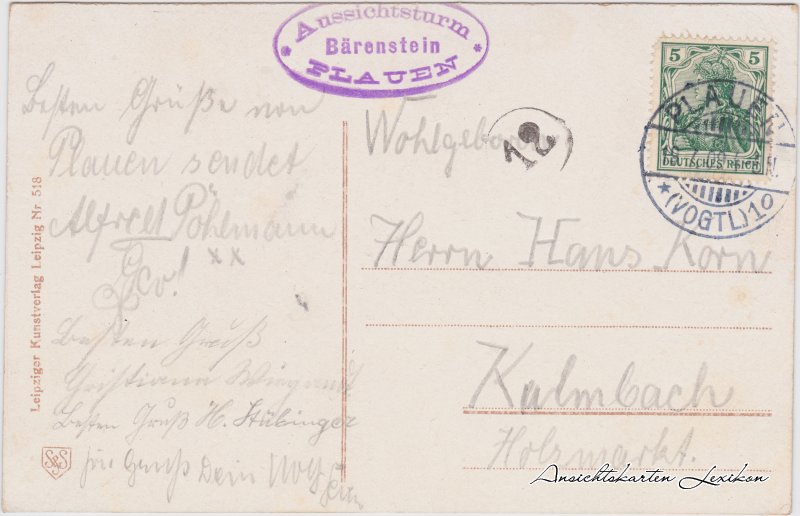 Aussichtsturm
Bärenstein
PLAUEN
5 5
DEUTSCHES REICH
PLAUEN
*(VOGTL)1
12
Besten Grüße von
Plauen sendet
Alfred Pöhlmann
xx
Besten Gruß
Christiann Wiegandt
Besten Gruß H. Stübinger
Gruß Dein Wolf
Wohlgeboren
Herrn Hans Korn
Kulmbach
Holzmarkt.
Leipziger Kunstverlag Leipzig Nr 518
S&S
Ansichtskarten Lexikon